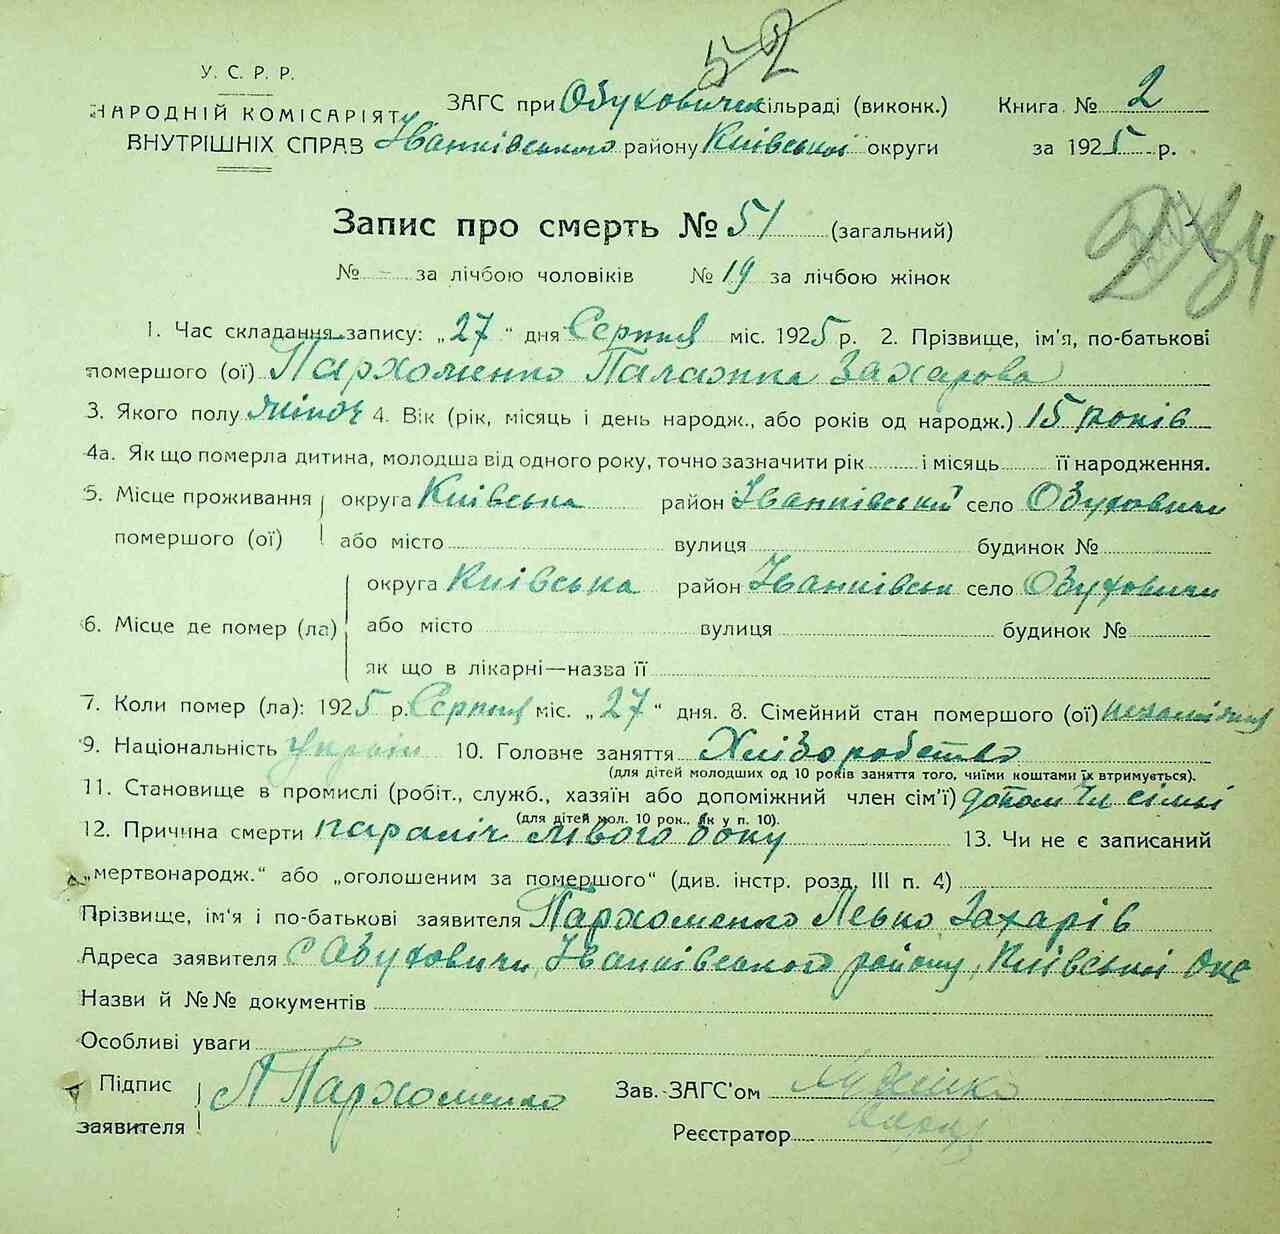 52
У. С. Р. Р.
НАРОДНІЙ КОМІСАРІЯТ
ВНУТРІШНІХ СПРАВ
ЗАГС при Обуховичській сільраді (виконк.) Книга № 2
Іванківського району Київської округи за 1925 р.
Запис про смерть № 51 (загальний)
№ - за лічбою чоловіків № 19 за лічбою жінок
1. Час складання запису: „27“ дня Серпня міс. 1925 р. 2. Прізвище, ім'я, по-батькові
помершого (ої) Пархоменко Палажка Захарова
3. Якого полу жіноч 4. Вік (рік, місяць і день народж., або років од народж.) 15 років
4а. Як що померла дитина, молодша від одного року, точно зазначити рік і місяць її народження.
5. Місце проживання округа Київська район Іванківський село Обуховичи
помершого (ої) або місто вулиця будинок №
округа Київська район Іванківськ село Обуховичи
6. Місце де помер (ла) або місто вулиця будинок №
як що в лікарні—назва її
7. Коли помер (ла): 1925 р. Серпня міс. „27“ дня. 8. Сімейний стан помершого (ої)
9. Національність Україн 10. Головне заняття Хліборобство
(для дітей молодших од 10 років заняття того, чиїми коштами їх втримується).
11. Становище в промислі (робіт., служб., хазяїн або допоміжний член сім'ї) допом чл сімьі
(для дітей мол. 10 рок., як у п. 10).
12. Причина смерти параліч лівого боку 13. Чи не є записаний
„мертвонародж.“ або „оголошеним за помершого“ (див. інстр. розд. III п. 4)
Прізвище, ім'я і по-батькові заявителя Пархоменко Лєько Захарів
Адреса заявителя с Обуховичи, Іванківського району, Київської Окр
Назви й №№ документів
Особливі уваги
Підпис Л Пархоменко Зав.-ЗАГС'ом
заявителя Реєстратор